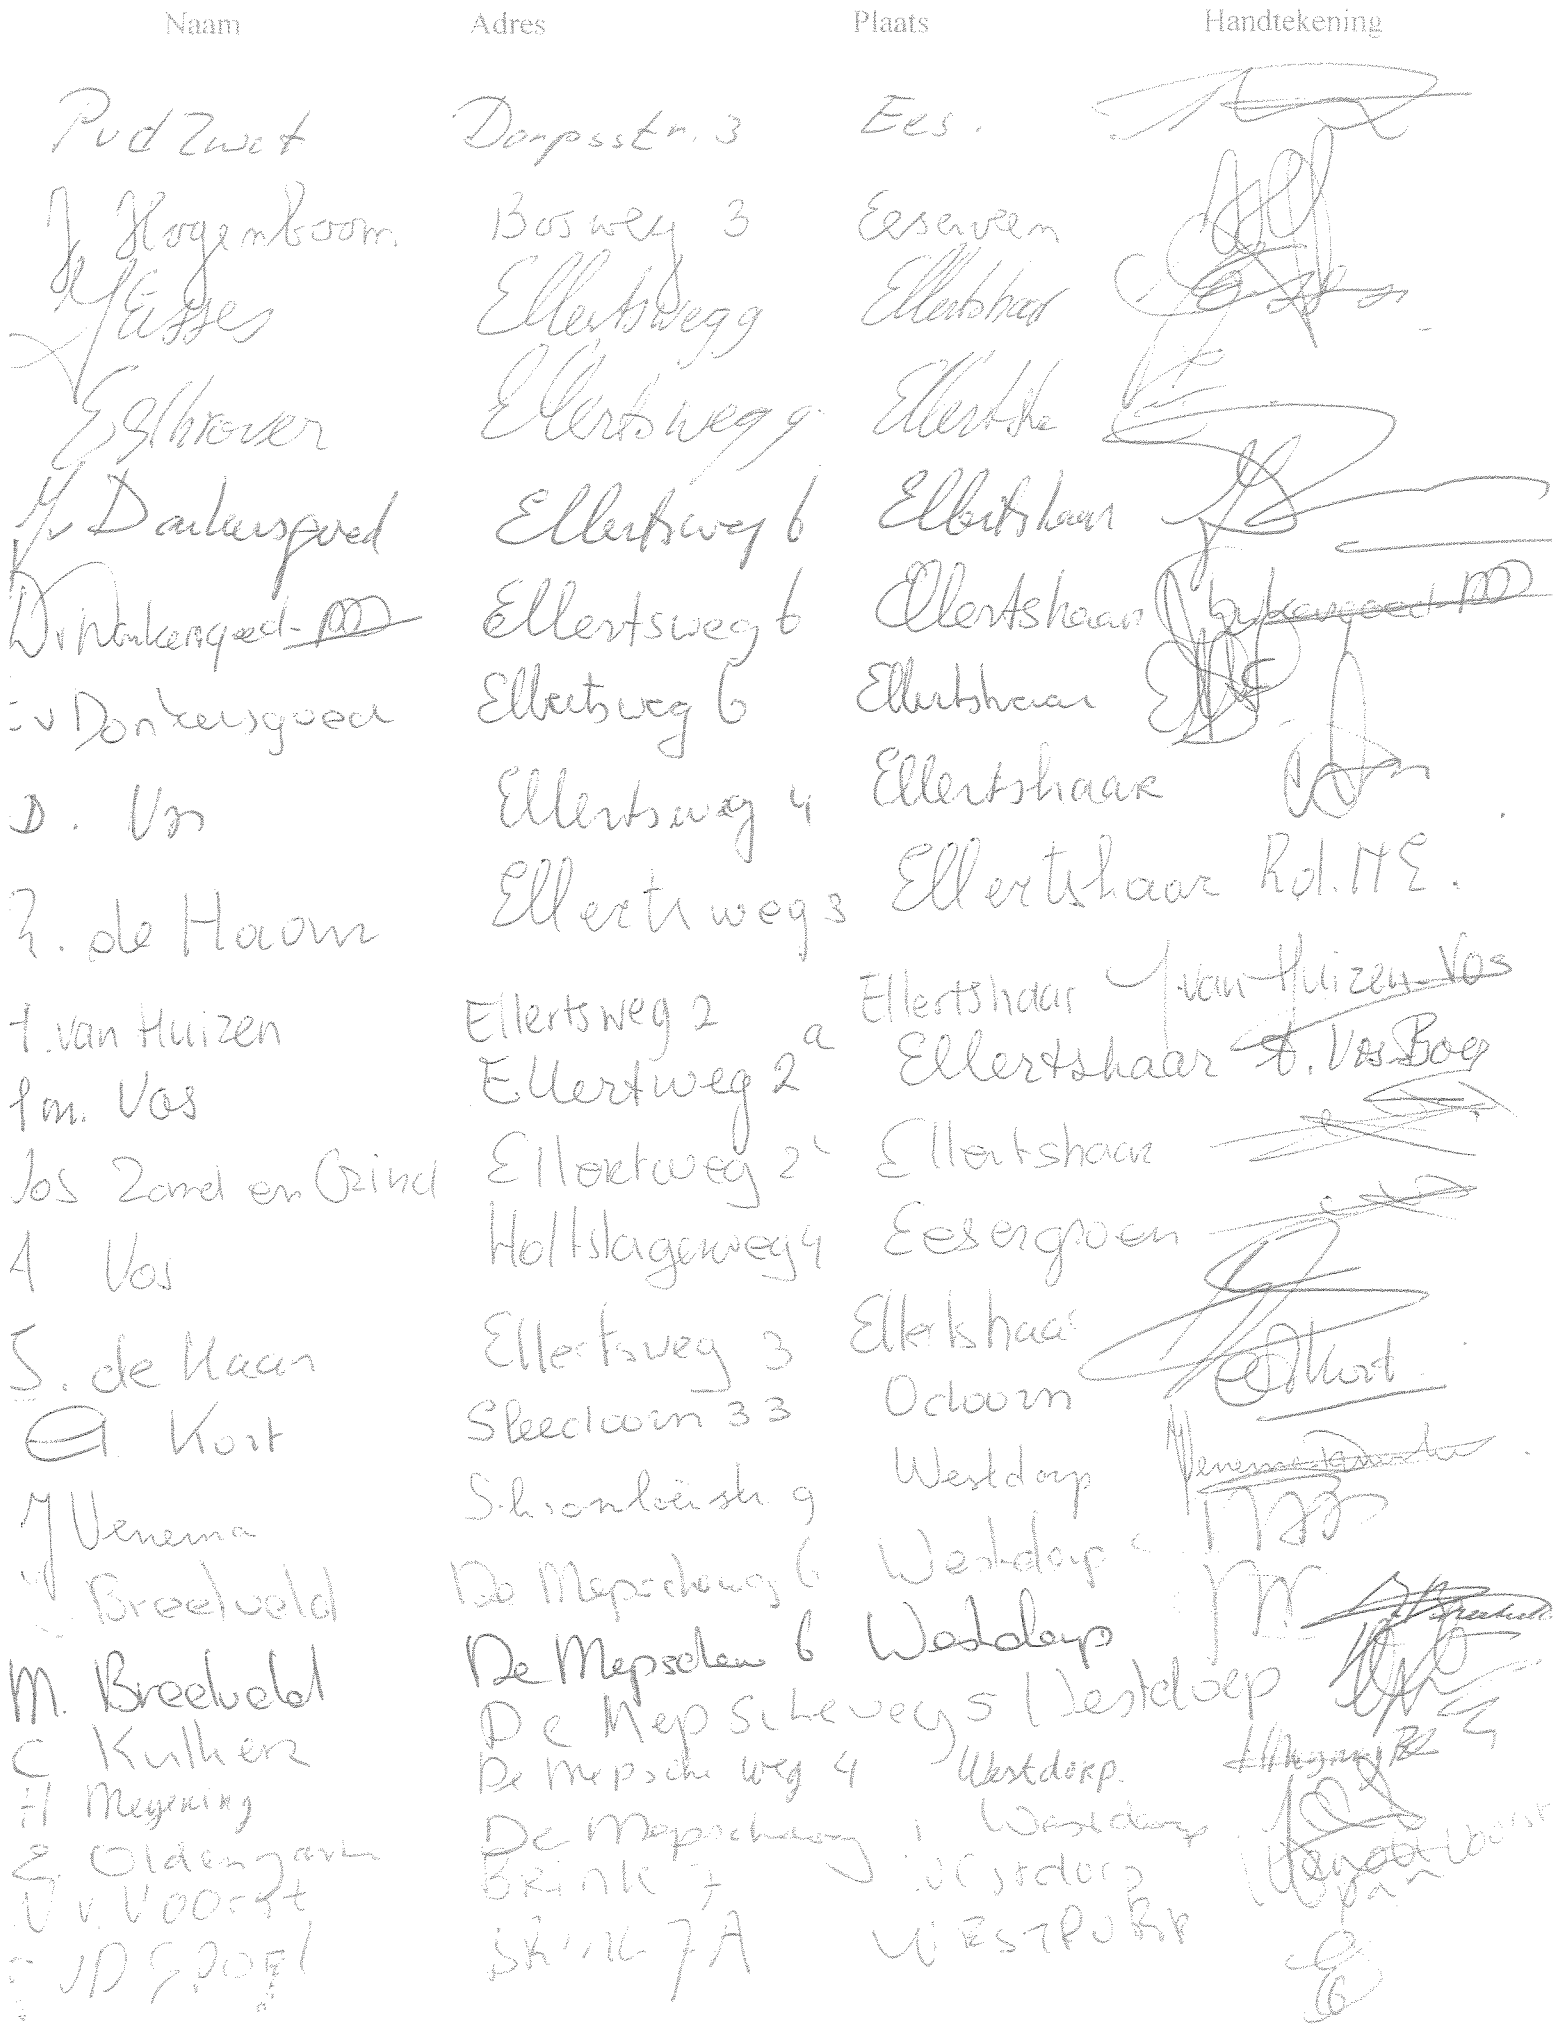 Naam Adres Plaats Handtekening
Dorpsstr. 3 Ees.
J Hogenboom Bosweg 3 Eeserveen
Eisses Ellertsweg 9 Ellertshaar
Ellertsweg 9 Ellertsha
J v Donkersgoed Ellertsweg 6 Ellertshaar
D v Donkersgoed Ellertsweg 6 Ellertshaar
v Donkersgoed Ellertsweg 6 Ellertshaar
D. Vos Ellertsweg 4 Ellertshaar
R. de Haan Ellertsweg 3 Ellertshaar R.d.H E.
van Huizen Ellertsweg 2 Ellertshaar J. van Huizen-Vos
Vos Ellertweg 2a Ellertshaar A. Vos-Boer
Jos Zand en Grind Ellertweg 2 Ellertshaar
A Vos Holtslagenweg 4 Eesergroen
S. de Haan Ellertsweg 3 Ellertshaar
Kort Sleedoorn 33 Odoorn Kort
J Venema 9 Westdorp Venema
Breedveld De Mepscheweg 6 Westdorp
M. Breedveld De Mepschew 6 Westdorp
C De Mepscheweg 5 Westdorp
H Meyering De Mepscheweg 4 Westdorp.
De Mepscheweg Westdorp
v. Voorst Brink 7 Westdorp
Brink 7A